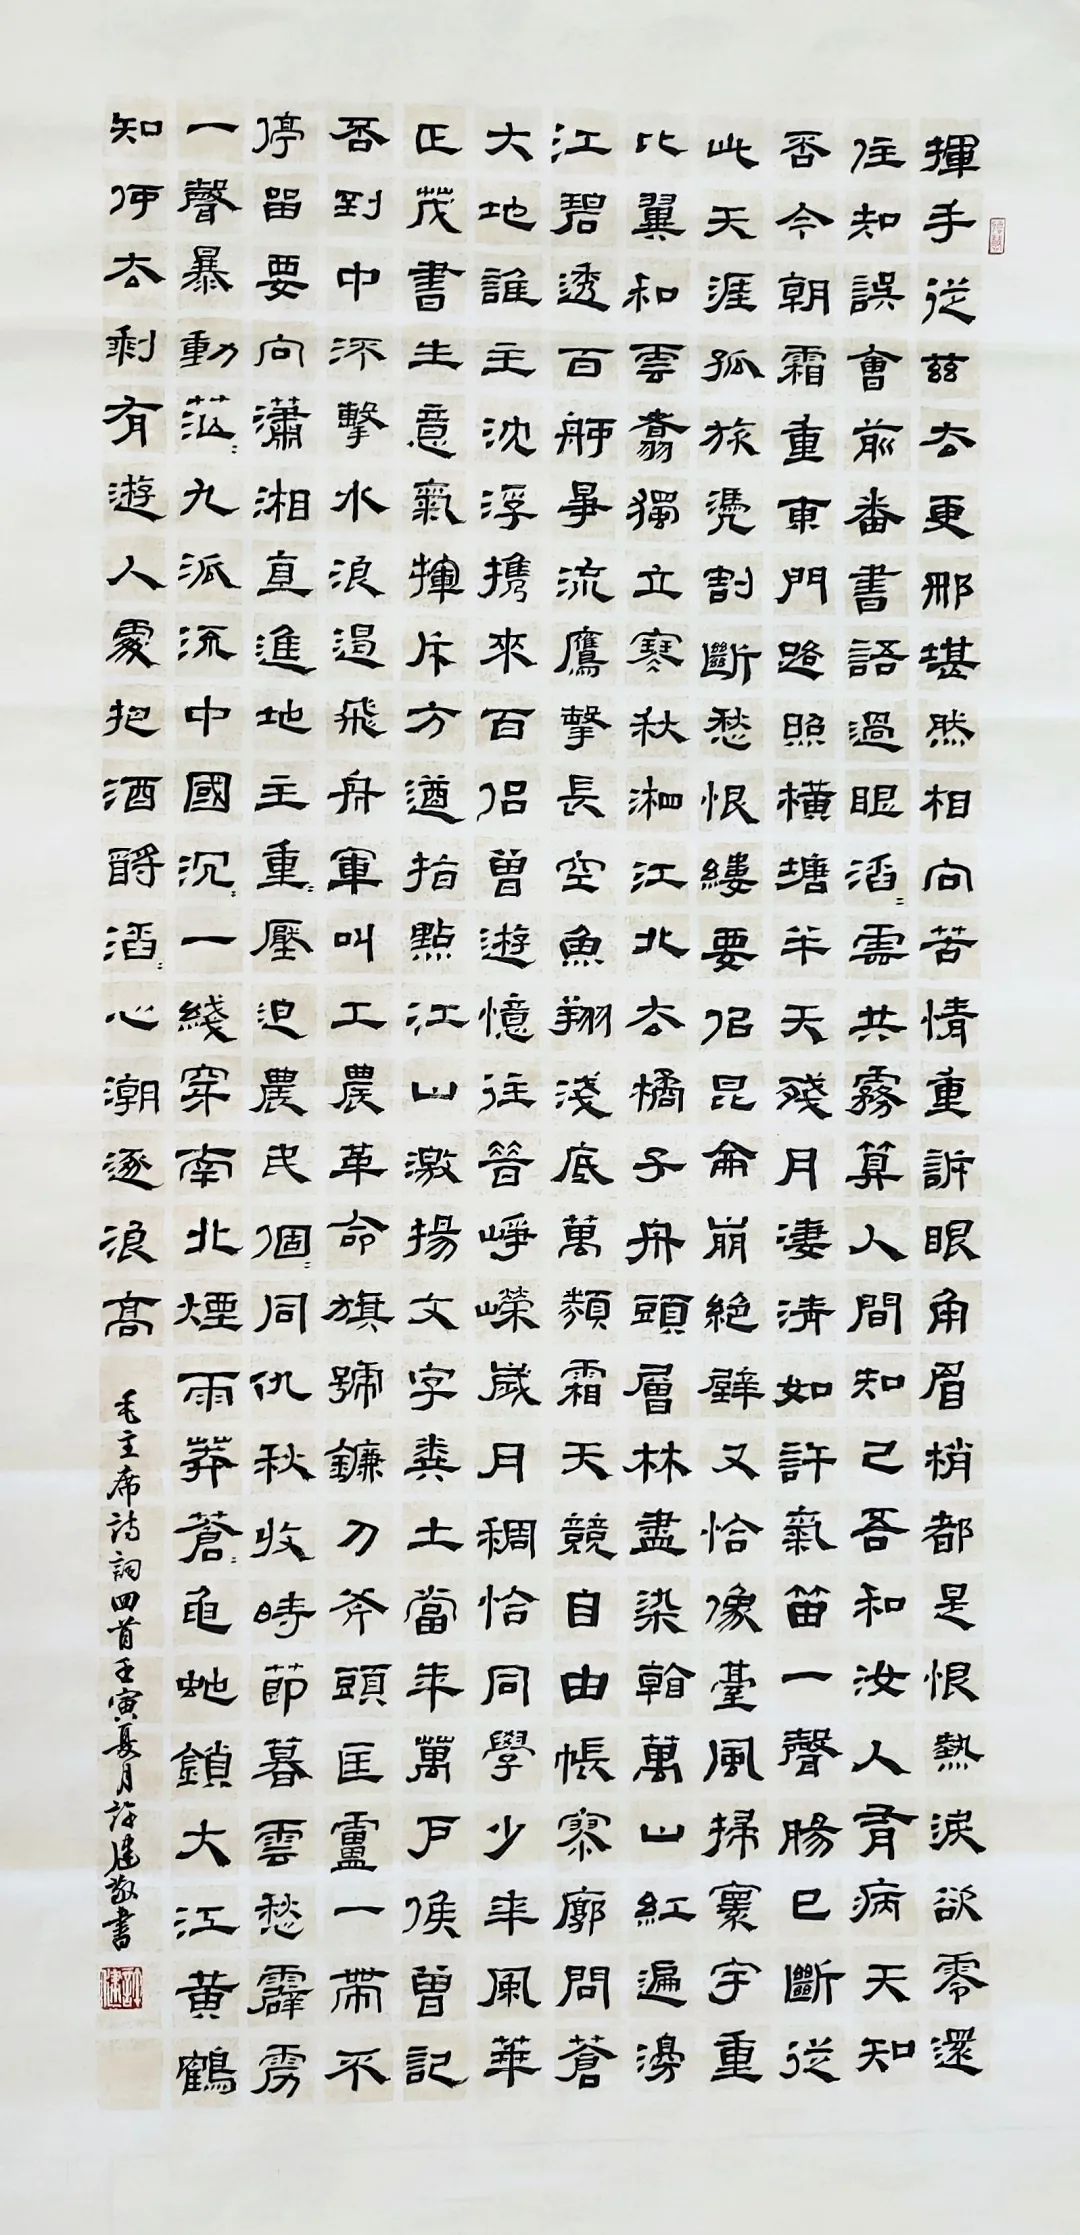 揮手從茲去更那堪然相向苦情重訴眼角眉梢都是恨熱淚欲零還
住知誤會前番書語過眼滔〻雲共霧算人間知己吾和汝人有病天知
否今朝霜重東門路照橫塘半天殘月淒清如許氣笛一聲腸已斷從
此天涯孤旅憑割斷愁恨縷要似昆侖崩絕壁又恰像臺風掃寰宇重
比翼和雲翥獨立寒秋湘江北去橘子舟頭層林盡染看萬山紅遍漫
江碧透百舸爭流鷹擊長空魚翔淺底萬類霜天競自由悵寥廓問蒼
大地誰主沈浮攜來百侶曾遊憶往昔崢嶸歲月稠恰同學少年風華
正茂書生意氣揮斥方遒指點江山激揚文字糞土當年萬戶侯曾記
否到中流擊水浪遏飛舟軍叫工農革命旗號鐮刀斧頭匡廬一帶不
停留要向瀟湘直進地主重〻壓迫農民個〻同仇秋收時節暮雲愁霹靂
一聲暴動茫〻九派流中國沉〻一線穿南北煙雨莽蒼〻龜蛇鎖大江黃鶴
知何去剩有遊人處把酒酹滔〻心潮逐浪高
毛主席詩詞四首壬寅夏月許建敬書